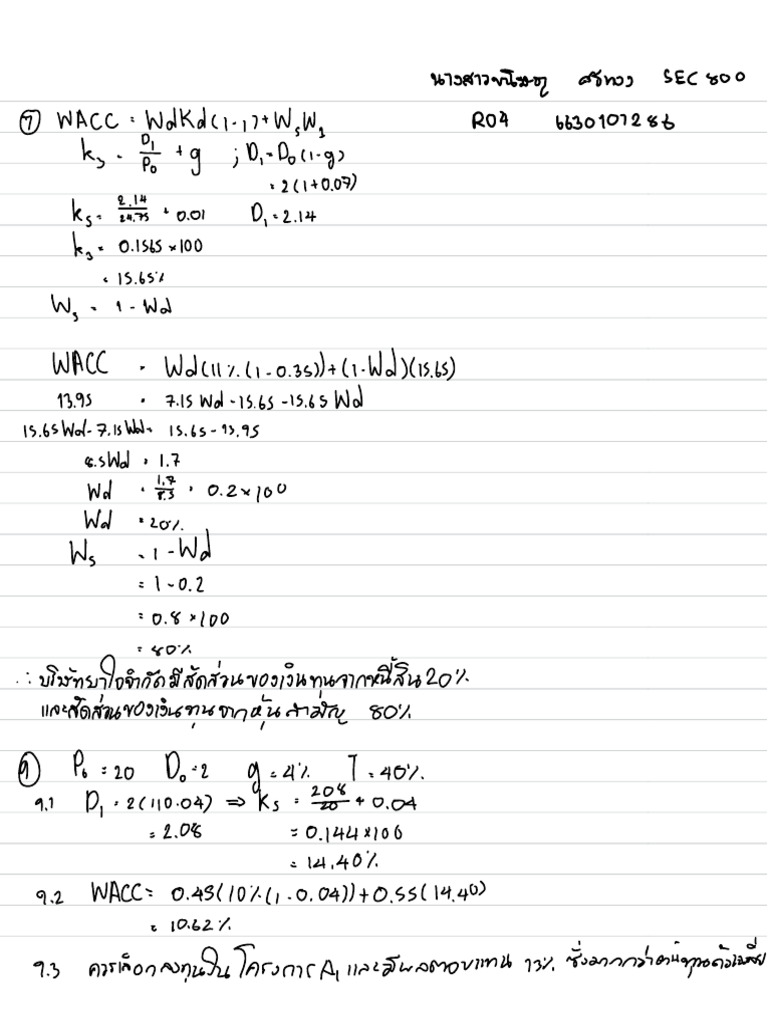 นางสาวขนิษฐา ศรีทอง SEC 800
⑦ WACC = WdKd(1-T)+WsWs R04 6630107286
ks = D1/P0 + g ; D1 = D0(1-g)
= 2(1+0.07)
ks = 2.14/24.75 + 0.01 D1 = 2.14
ks = 0.1565 × 100
= 15.65%
Ws = 1 - Wd
WACC = Wd(11%(1-0.35))+(1-Wd)(15.65)
13.95 = 7.15Wd - 15.65 - 15.65Wd
15.65Wd - 7.15Wd = 15.65 - 13.95
8.5Wd = 1.7
Wd = 1.7/8.5 = 0.2 × 100
Wd = 20%
Ws = 1 - Wd
= 1 - 0.2
= 0.8 × 100
= 80%
∴ บริษัทยาใจจำกัดมีสัดส่วนของเงินทุนจากหนี้สิน 20%
และสัดส่วนของเงินทุนจากหุ้นสามัญ 80%
⑨ P0 = 20 D0 = 2 g = 4% T = 40%
9.1 D1 = 2(110.04) ⇒ Ks = 208/20 + 0.04
= 2.08 = 0.144×100
= 14.40%
9.2 WACC = 0.45(10%(1-0.04))+0.55(14.40)
= 10.62%
9.3 ควรเลือกลงทุนใน โครงการ A1 และมีผลตอบแทน 13% ซึ่งมากกว่าต้นทุนถัวเฉลี่ย